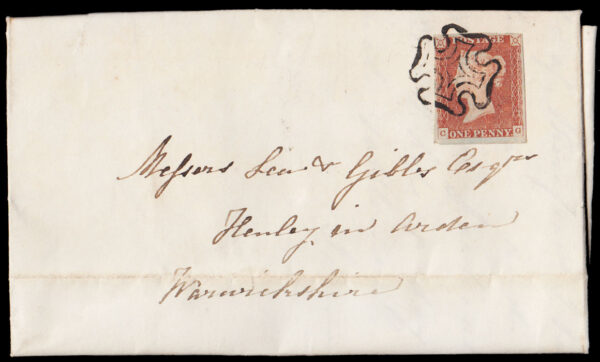 POSTAGE
ONE PENNY
C G
Messrs Gibbs Esqrs
Henley in Arden
Warwickshire